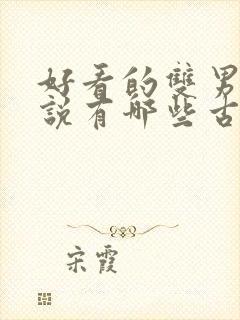 好看的雙男
說有哪些古
宋霞